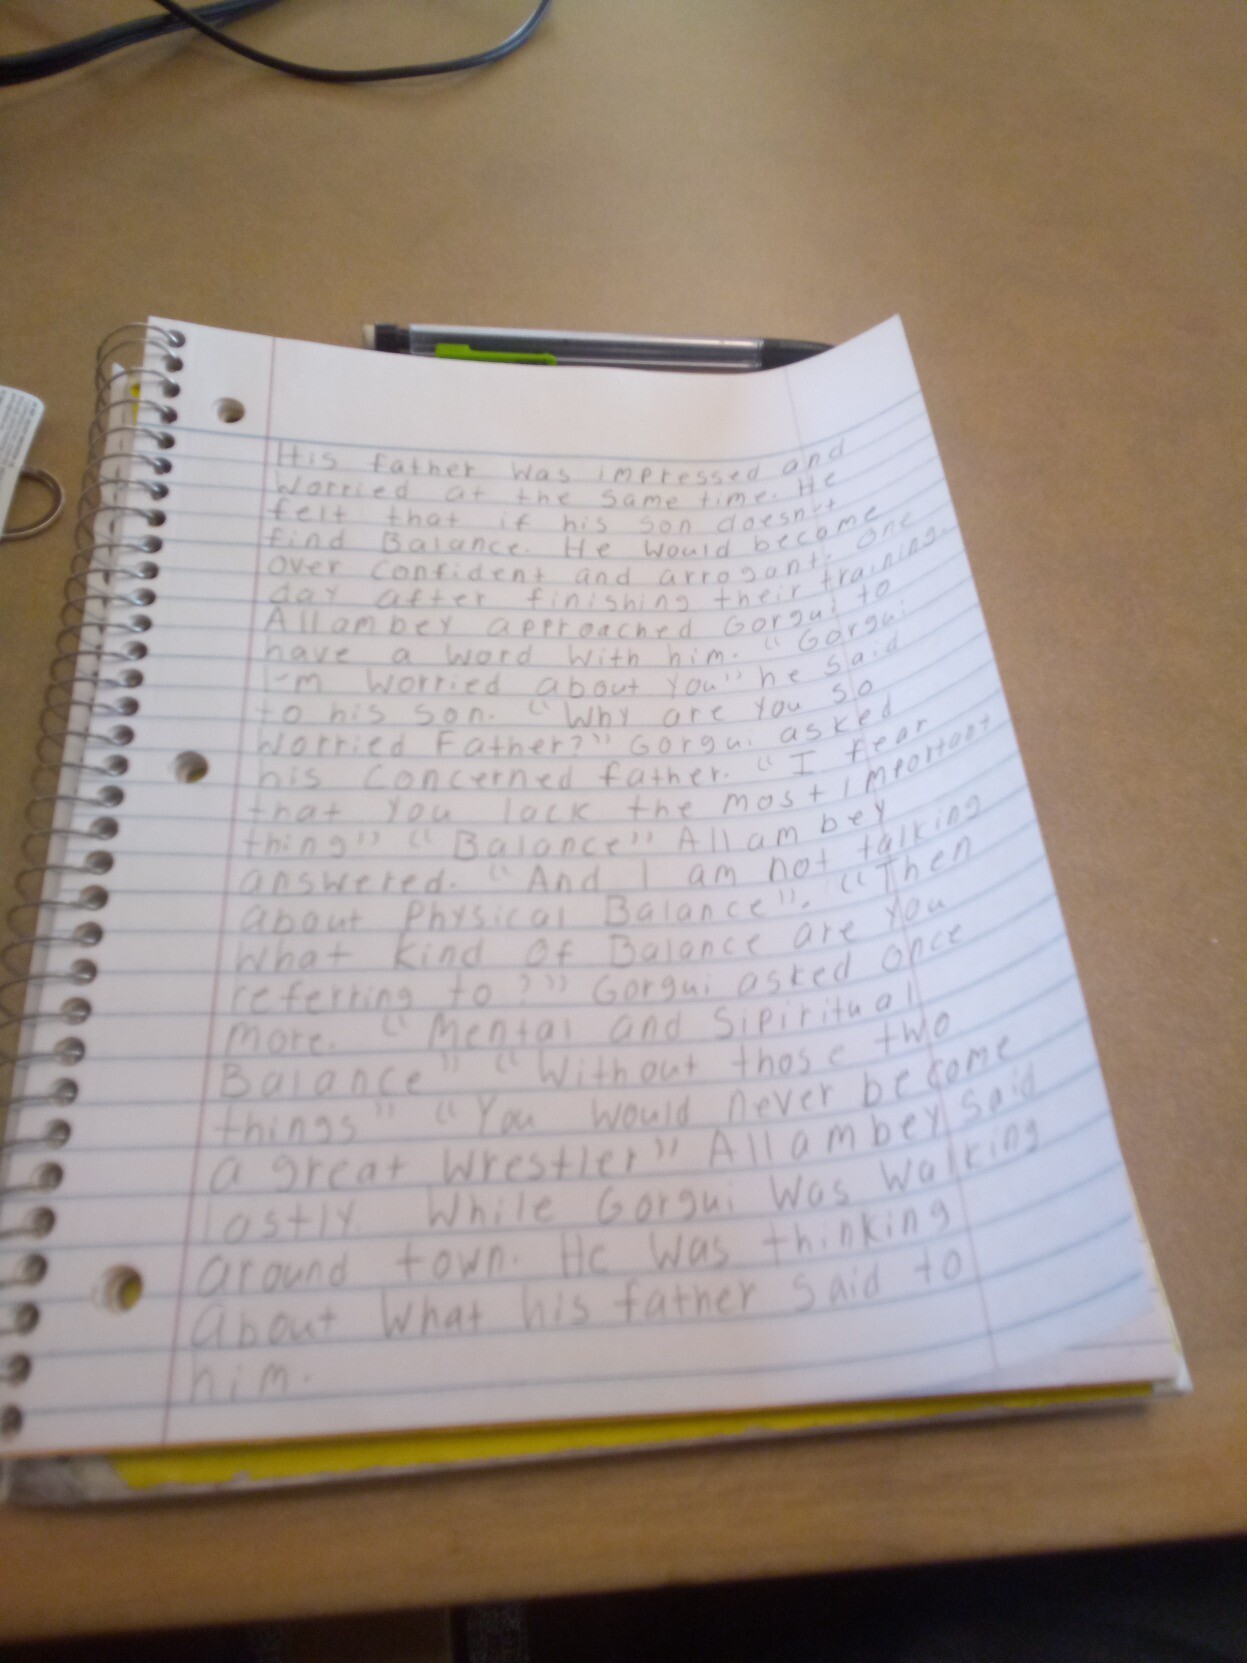 His father was impressed and
Worried at the same time. He
felt that if his son doesn't
find Balance. He would become
over confident and arrogant. One
day after finishing their training.
Allambey approached Gorgui to
have a word with him. "Gorgui
I'm worried about you" he said
to his son. "Why are you so
Worried Father?" Gorgui asked
his Concerned father. "I fear
that you lack the most important
thing" "Balance" Allambey
answered. "And I am not talking
about Physical Balance". "Then
What kind of Balance are you
referring to?" Gorgui asked once
more. "Mental and Sipiritual
Balance" "Without those two
things" "You would never become
a great Wrestler" Allambey said
lastly. While Gorgui Was Walking
around town. He Was thinking
About What his father said to
him.